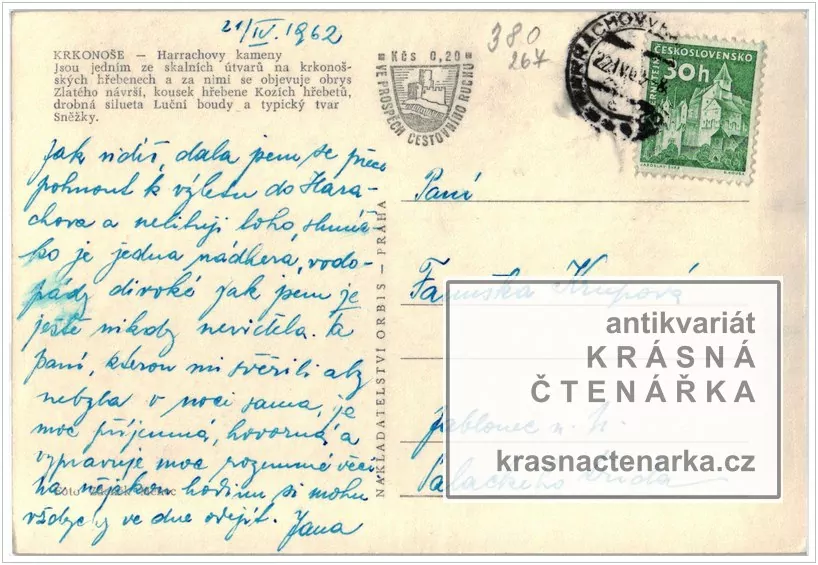 21/IV. 1962
KRKONOŠE – Harrachovy kameny
Jsou jedním ze skalních útvarů na krkonoš-
ských hřebenech a za nimi se objevuje obrys
Zlatého návrší, kousek hřebene Kozích hřbetů,
drobná silueta Luční boudy a typický tvar
Sněžky.
Kčs 0,20
VE PROSPĚCH CESTOVNÍHO RUCHU
380
267
ČESKOSLOVENSKO
30h
Jak vidíš, dala jsem se přece
pohnout k výletu do Hara-
chova a nelituji toho, sluníč-
ko je jedna nádhera, vodo-
pády divoké jak jsem je
ještě nikdy neviděla. Ta
paní, kterou mi svěřili aby
nebyla v noci sama, je
moc příjemná, hovorná, a
vypravuje moc rozumné věci
na nějakou hodinu si mohu
vždycky ve dne odejít. Jana
NAKLADATELSTVÍ ORBIS – PRAHA
Paní
Krupová
Jablonec n. N.
Palackého třída
antikvariát
KRÁSNÁ
ČTENÁŘKA
krasnactenarka.cz